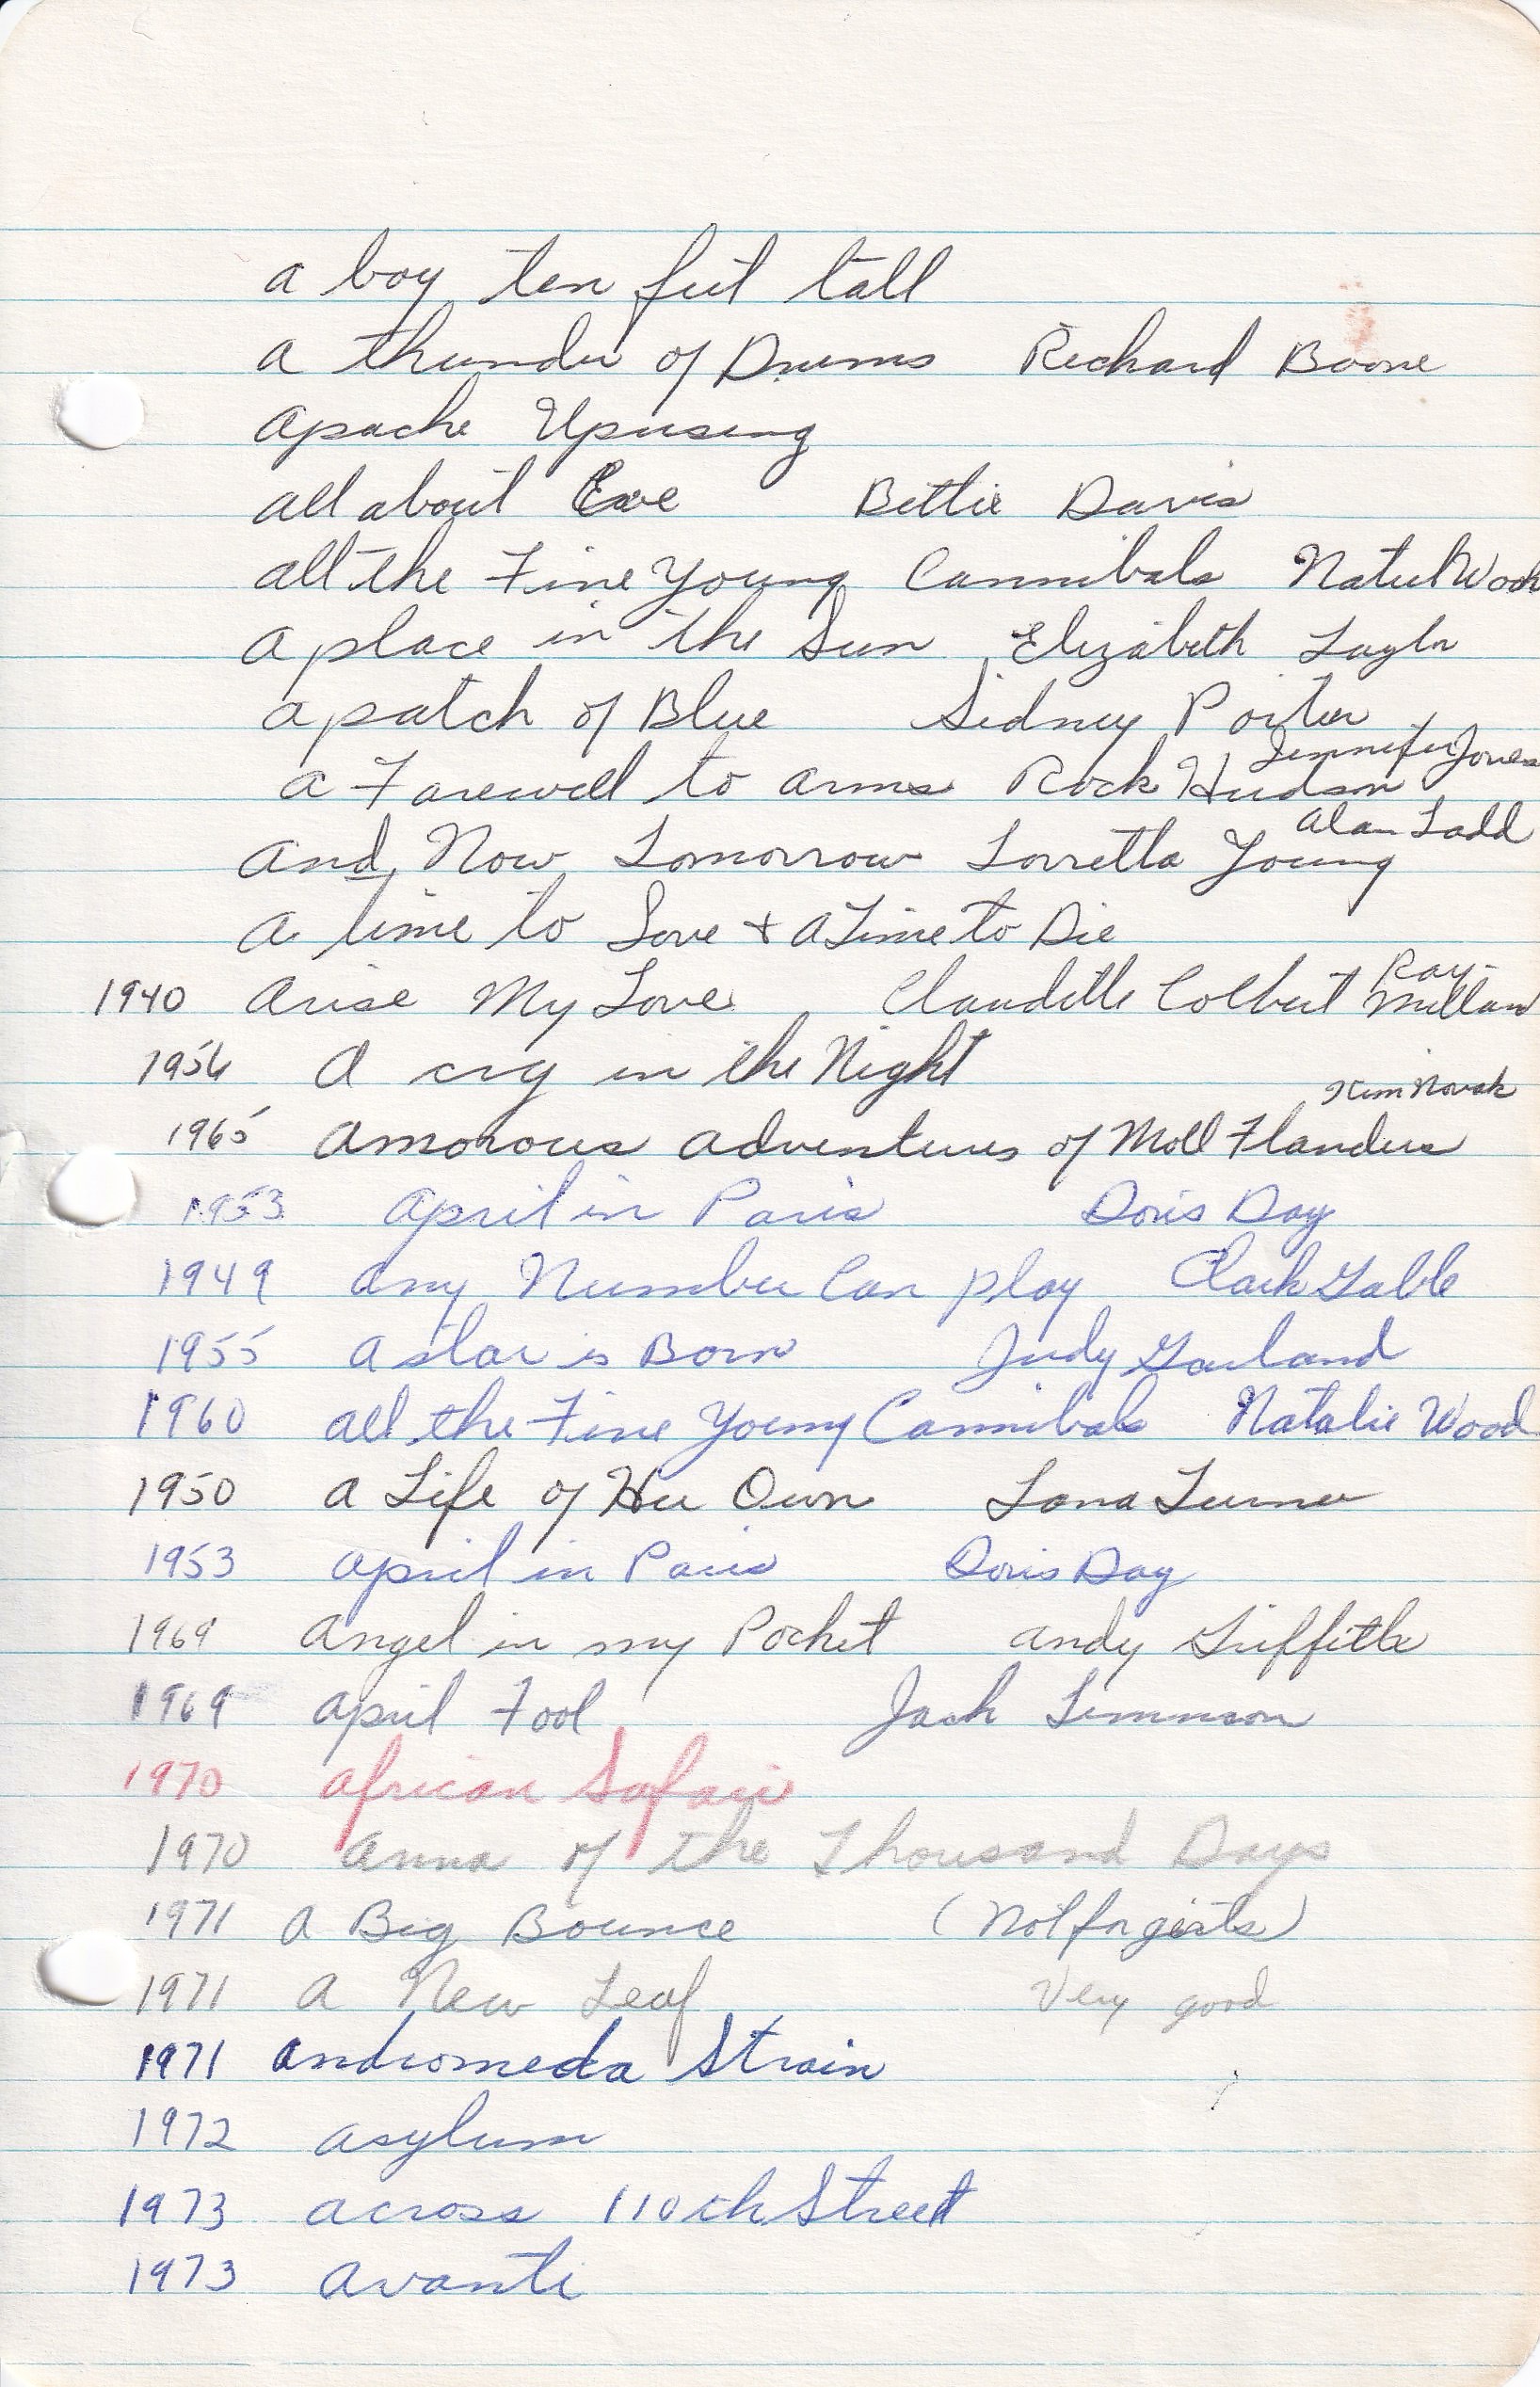 a boy ten feet tall
a thunder of Drums Richard Boone
apache Uprising
all about Eve Bettie Davis
all the Fine Young Cannibals Natul Wood
a place in the Sun Elizabeth Taylor
a patch of Blue Sidney Poiter
Jennifer Jones
a Farewell to arms Rock Hudson
alan Ladd
and Now Tomorrow Lorretta Young
a time to Love + a Time to Die
1940 arise My Love Claudette Colbert Ray Millan
1956 A cry in the Night
Kim Novak
1965 amorous adventures of Moll Flanders
1953 april in Paris Doris Day
1949 any Number Can play Clark Gable
1955 a star is Born Judy Garland
1960 all the Fine Young Cannibals Natalie Wood
1950 a Life of Her Own Lana Turner
1953 april in Paris Doris Day
1969 angel in my Pocket andy Griffith
1969 april Fool Jack Lemmson
1970 african Safari
1970 anna of the Thousand Days
1971 a Big Bounce (Not for girls)
1971 a New Leaf Very good
1971 andromeda Strain
1972 asylum
1973 across 110th Street
1973 avanti